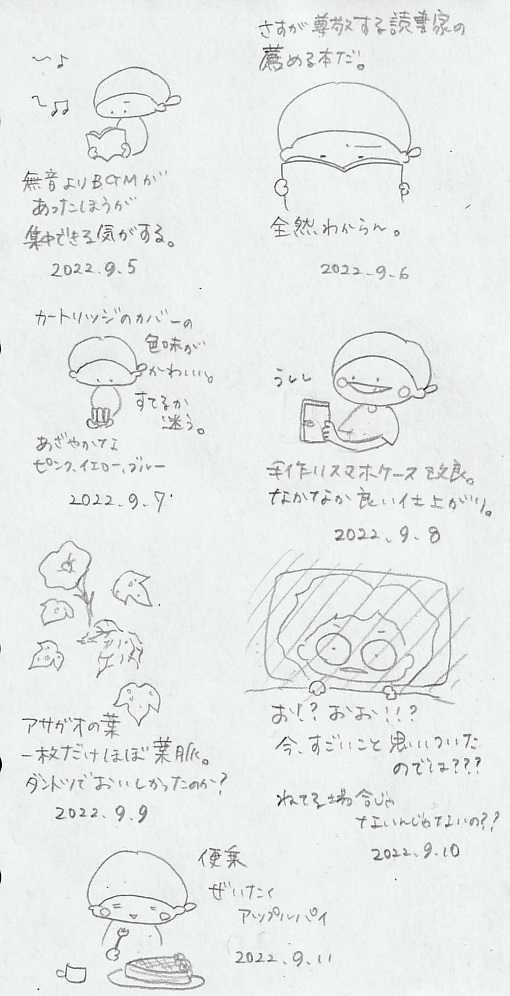 無音よりBGMが
あったほうが
集中できる気がする。
2022.9.5
さすが尊敬する読書家の
薦める本だ。
全然わからん。
2022.9.6
カートリッジのカバーの
色味が
かわいい。
すてるか
迷う。
あざやかな
ピンク、イエロー、ブルー
2022.9.7
うしし
手作りスマホケース改良。
なかなか良い仕上がり。
2022.9.8
アサガオの葉
一枚だけほぼ葉脈。
ダントツでおいしかったのか?
2022.9.9
お!? おお!!?
今、すごいこと思いついた
のでは???
ねてる場合じゃ
ないんじゃないの??
2022.9.10
便乗
ぜいたく
アップルパイ
2022.9.11